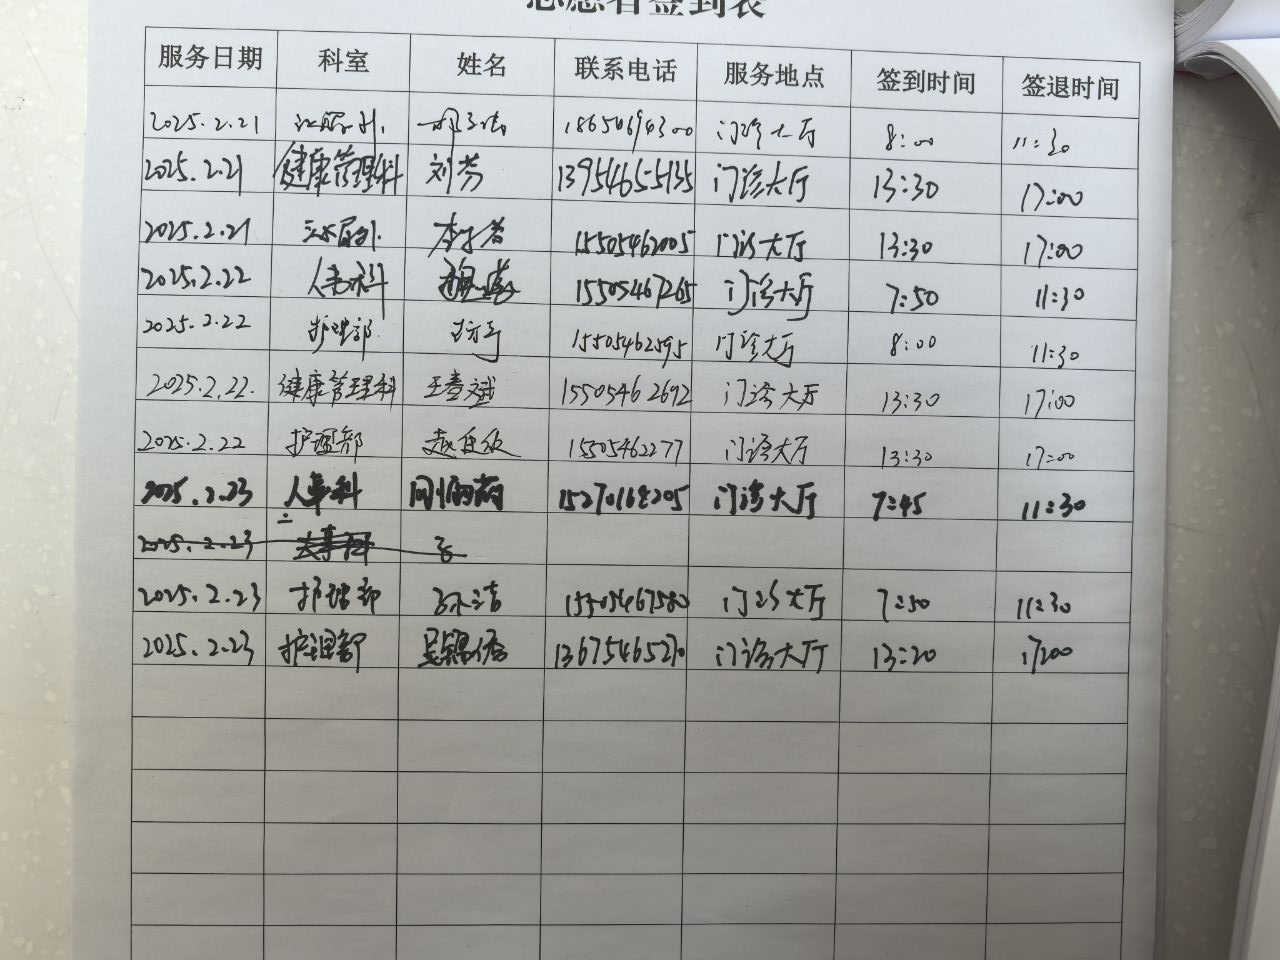 志愿者签到表
服务日期 科室 姓名 联系电话 服务地点 签到时间 签退时间
2025.2.21 18650694300 门诊大厅 8:00 11:30
2025.2.21 健康管理科 刘芳 13954655135 门诊大厅 13:30 17:00
2025.2.21 15505462005 门诊大厅 13:30 17:00
2025.2.22 人事科 15505467265 门诊大厅 7:50 11:30
2025.2.22 护理部 15505462595 门诊大厅 8:00 11:30
2025.2.22. 健康管理科 王春斌 15505462692 门诊大厅 13:30 17:00
2025.2.22 护理部 15505462277 门诊大厅 13:30 17:00
2025.2.23 人事科 15270168205 门诊大厅 7:45 11:30
2025.2.23
2025.2.23 护理部 孙洁 15505467580 门诊大厅 7:50 11:30
2025.2.23 护理部 13675465270 门诊大厅 13:20 17:00